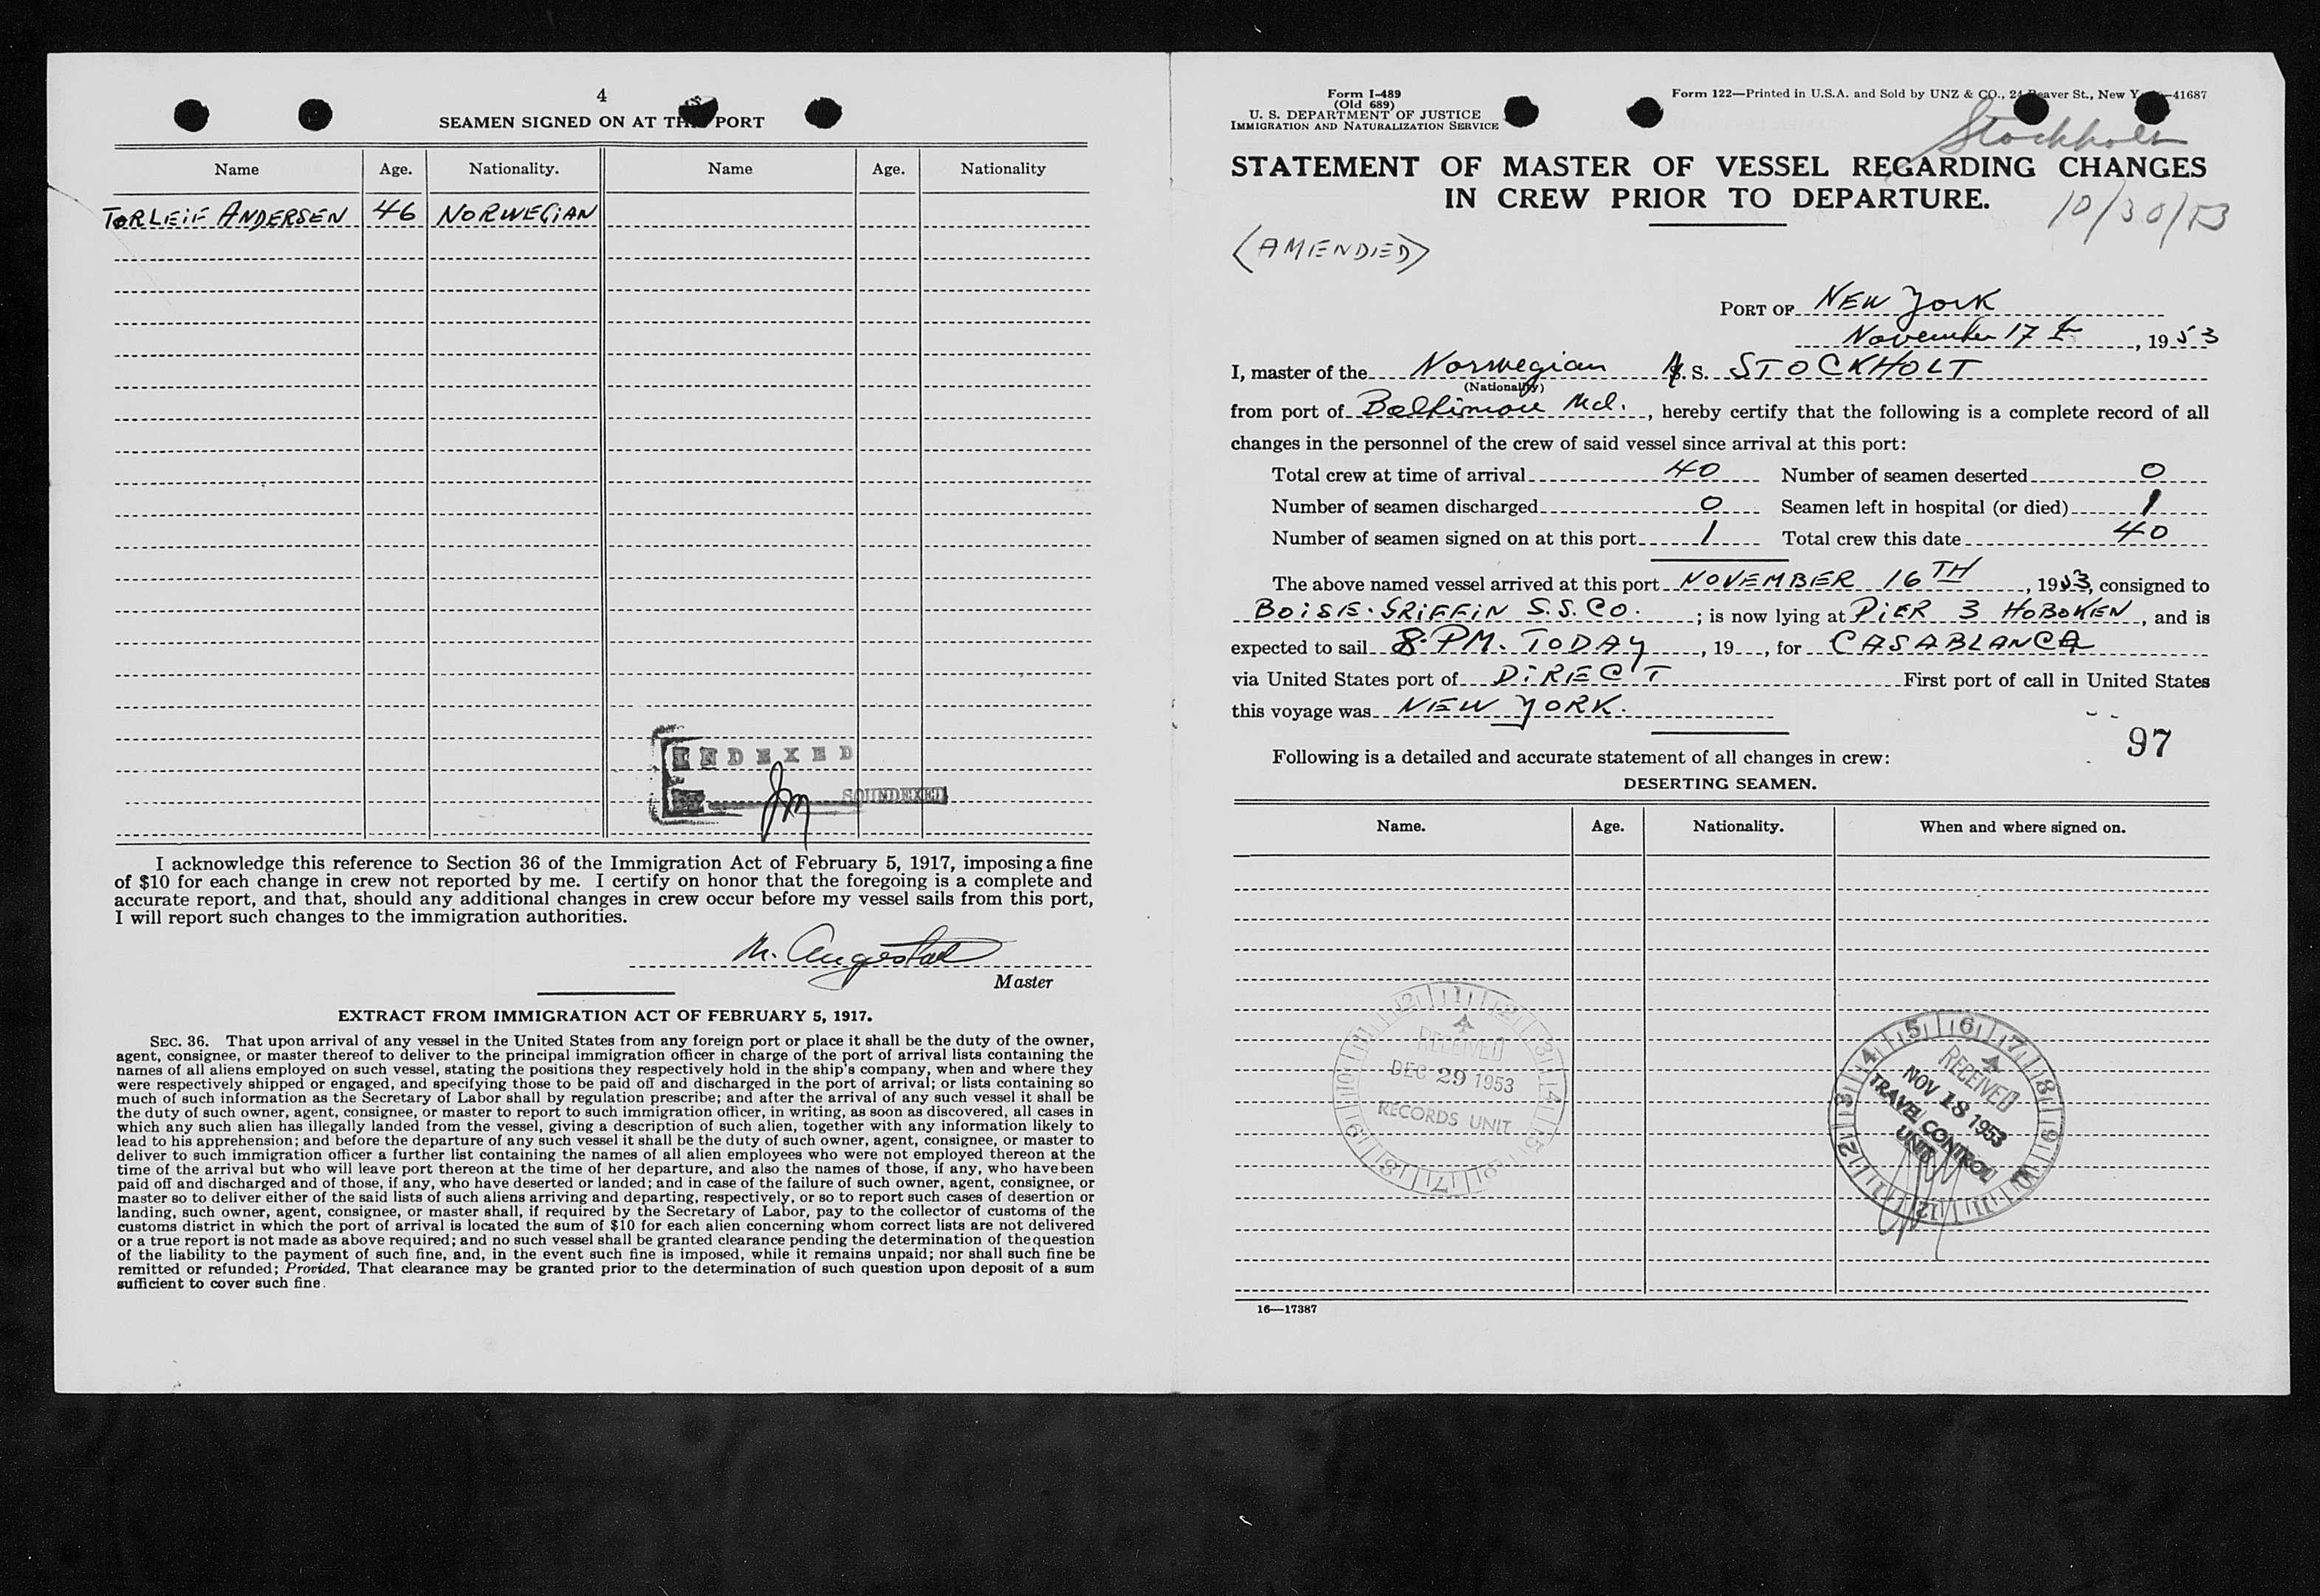 4
SEAMEN SIGNED ON AT THIS PORT
Name Age. Nationality. Name Age. Nationality
TORLEIF ANDERSEN 46 NORWEGIAN
INDEXED
SOUNDEXED
I acknowledge this reference to Section 36 of the Immigration Act of February 5, 1917, imposing a fine
of $10 for each change in crew not reported by me. I certify on honor that the foregoing is a complete and
accurate report, and that, should any additional changes in crew occur before my vessel sails from this port,
I will report such changes to the immigration authorities.
Master
EXTRACT FROM IMMIGRATION ACT OF FEBRUARY 5, 1917.
SEC. 36. That upon arrival of any vessel in the United States from any foreign port or place it shall be the duty of the owner,
agent, consignee, or master thereof to deliver to the principal immigration officer in charge of the port of arrival lists containing the
names of all aliens employed on such vessel, stating the positions they respectively hold in the ship's company, when and where they
were respectively shipped or engaged, and specifying those to be paid off and discharged in the port of arrival; or lists containing so
much of such information as the Secretary of Labor shall by regulation prescribe; and after the arrival of any such vessel it shall be
the duty of such owner, agent, consignee, or master to report to such immigration officer, in writing, as soon as discovered, all cases in
which any such alien has illegally landed from the vessel, giving a description of such alien, together with any information likely to
lead to his apprehension; and before the departure of any such vessel it shall be the duty of such owner, agent, consignee, or master to
deliver to such immigration officer a further list containing the names of all alien employees who were not employed thereon at the
time of the arrival but who will leave port thereon at the time of her departure, and also the names of those, if any, who have been
paid off and discharged and of those, if any, who have deserted or landed; and in case of the failure of such owner, agent, consignee, or
master so to deliver either of the said lists of such aliens arriving and departing, respectively, or so to report such cases of desertion or
landing, such owner, agent, consignee, or master shall, if required by the Secretary of Labor, pay to the collector of customs of the
customs district in which the port of arrival is located the sum of $10 for each alien concerning whom correct lists are not delivered
or a true report is not made as above required; and no such vessel shall be granted clearance pending the determination of the question
of the liability to the payment of such fine, and, in the event such fine is imposed, while it remains unpaid; nor shall such fine be
remitted or refunded; Provided, That clearance may be granted prior to the determination of such question upon deposit of a sum
sufficient to cover such fine.
Form I-489
(Old 689)
U. S. DEPARTMENT OF JUSTICE
IMMIGRATION AND NATURALIZATION SERVICE
Form 122—Printed in U.S.A. and Sold by UNZ & CO., 24 Beaver St., New York—41687
STATEMENT OF MASTER OF VESSEL REGARDING CHANGES
IN CREW PRIOR TO DEPARTURE.
10/30/53
(AMENDED)
PORT OF NEW York
November 17th, 1953
I, master of the Norwegian M. S. STOCKHOLT
(Nationality)
from port of Baltimore Md., hereby certify that the following is a complete record of all
changes in the personnel of the crew of said vessel since arrival at this port:
Total crew at time of arrival 40 Number of seamen deserted 0
Number of seamen discharged 0 Seamen left in hospital (or died) 1
Number of seamen signed on at this port 1 Total crew this date 40
The above named vessel arrived at this port NOVEMBER 16TH, 1953, consigned to
BOISE-GRIFFIN S.S.CO.; is now lying at PIER 3 HOBOKEN, and is
expected to sail 8-PM. TODAY, 19, for CASABLANCA
via United States port of DIRECT First port of call in United States
this voyage was NEW YORK.
97
Following is a detailed and accurate statement of all changes in crew:
DESERTING SEAMEN.
Name. Age. Nationality. When and where signed on.
RECEIVED
DEC 29 1953
RECORDS UNIT
RECEIVED
NOV 18 1953
TRAVEL CONTROL
UNIT
16—17387